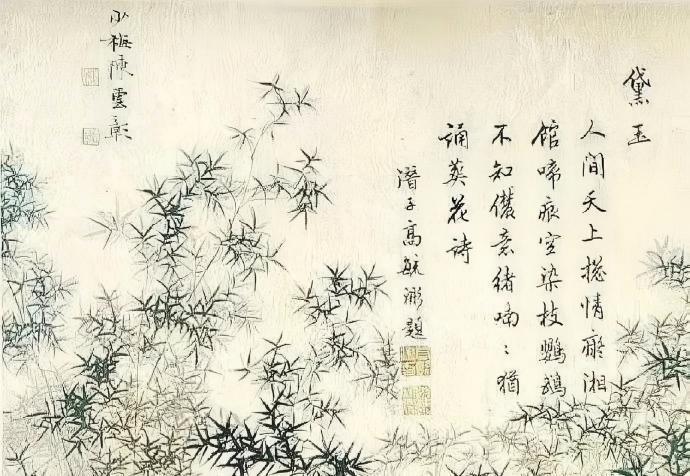 黛玉
人間天上揔情癡湘
館啼痕空染枝鸚鵡
不知儂意緒喃〻猶
誦葬花詩
潛子高毓浵題
少梅陳雲彰